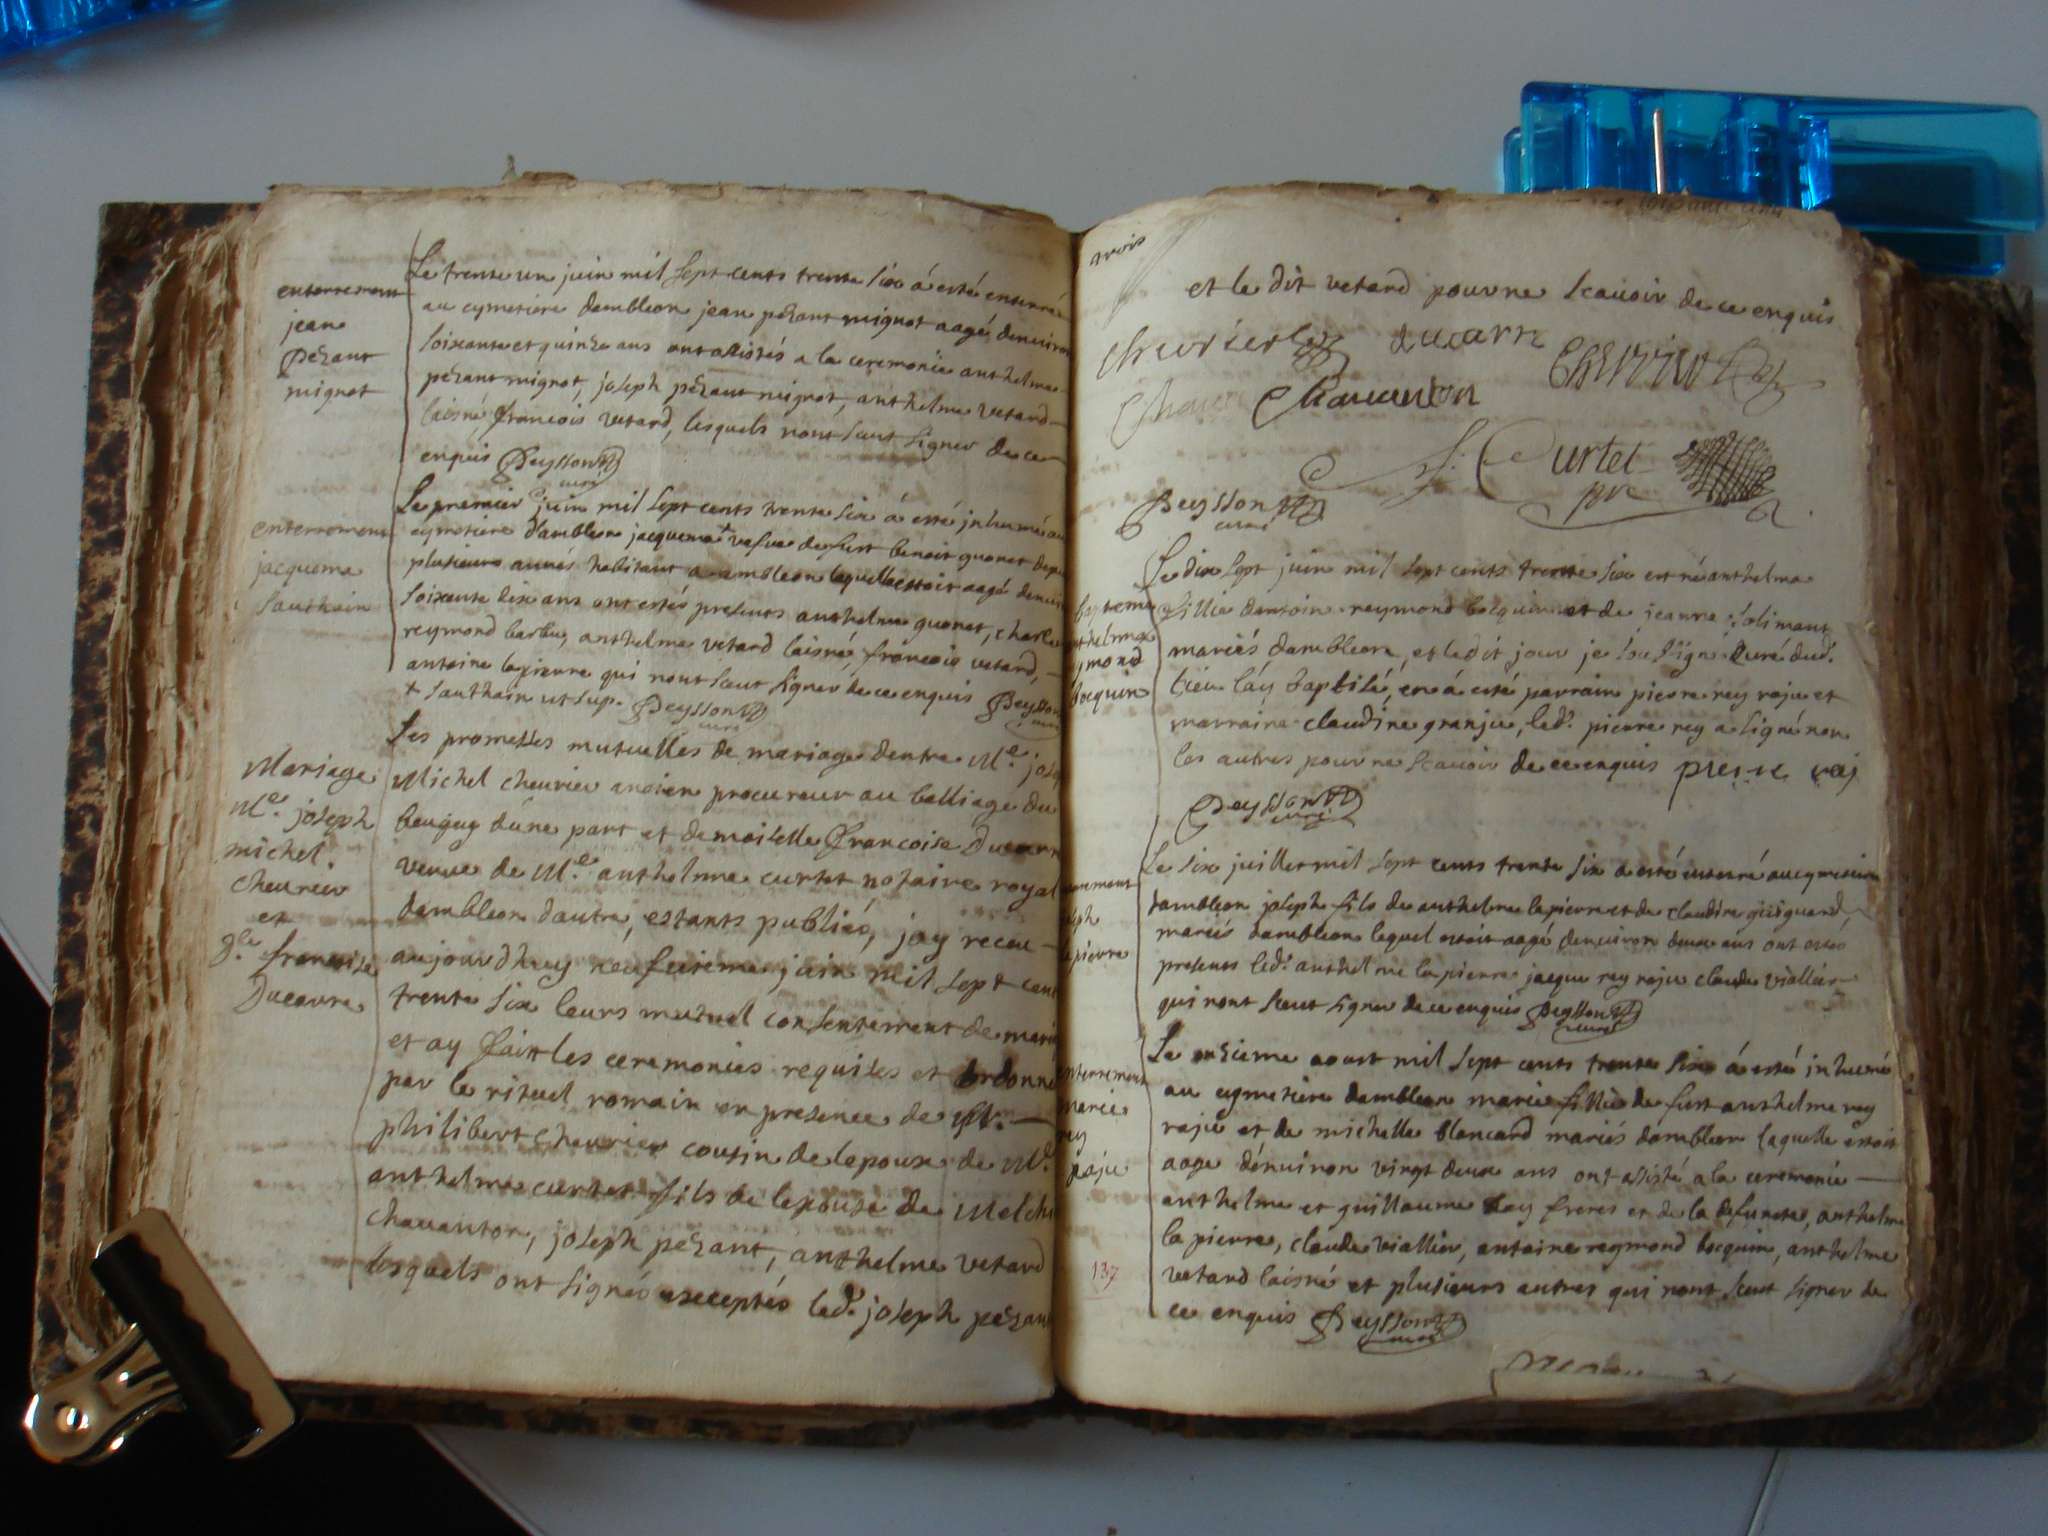 enterrement
jean
pézant
mignot
Le trente un juin mil sept cents trente six á esté enterré
au cymetiere dambleon jean pézant mignot aagé denuiron
soixante et quinze ans ont assistés a la ceremonie anthelme
pézant mignot, joseph pézant mignot, anthelme vetard
laisné françois vetard, lesquels nont sceut signer de ce
enquis Peysson curé
enterrement
jacquema
Sauthain
Le premier juin mil sept cents trente six á esté jnhumé au
cymetiere dambleon jacquema + vefue de fust benoit guonet depu
plusieurs annés habitant a ambleon laquelle estoit aagé denuir
soixante dix ans ont estés presents anthelme guonet, charle
reymond barbu, anthelme vetard laisné, françois vetard,
antoine lapierre qui nont sceut signer de ce enquis Peysson curé
+ Sauthain ut sup. Peysson curé
Mariage
Me. joseph
michel
cheurier
et
dle. françoise
Ducarre
Les promesses mutuelles de mariage dentre Me. jose
Michel cheurier ancien procureur au balliage du
beugey dúne part et demoiselle Françoise Ducarre
veuue de Me. anthelme curtet notaire royal
dambleon dautre, estants publiés, jay receu
aujourdhuy neufuieme juin mil sept cent
trente six leurs mutuel consentement de mari
et ay fait les ceremonies requises et ordonné
par le rituel romain en presence de Mr.
philibert cheurier cousin de lepoux de Me.
anthelme curtet fils de lepouse de Melchi
chauanton, joseph pézant, anthelme vetard
lesquels ont signés exceptés led. joseph pézant
trois
et le dit vetard pour ne scauoir de ce enquis
cheurier ducarre Cheurier
Chauanton
Curtet
pre
Peysson curé
bapteme
anthelma
reymond
bocquin
Le dix sept juin mil sept cents trente six est né anthelma
fillie dantoine reymond bocquin et de jeanne solimant
mariés dambleon, et le dit jour je sousigné curé dud.
lieu láy baptisé, en á esté parrain pierre rey raju et
marraine claudine granju, led. pierre rey a signé non
les autres pour ne scauoir de ce enquis pierre rej
Peysson curé
enterrement
joseph
lapierre
Le six juillet mil sept cents trente six a esté enterré au cymetiere
dambleon joseph fils de anthelme lapierre et de claudine
mariés dambleon lequel estoit aagé denuiron deux ans ont estés
presents led. anthelme lapierre jacque rey raju claude viallier
qui nont sceut signer de ce enquis Peysson curé
enterrement
marie
rey
raju
Le onzieme aoust mil sept cents trente six á esté jnhumé
au cymetiere dambleon marie fillie de fust anthelme rey
raju et de michelle blancard mariés dambleon laquelle estoit
aage dénuiron vingt deux ans ont assisté a la ceremonie
anthelme et guillaume Rey freres et de la defuncte, anthelme
la pierre, claude viallier, antoine reymond bocquin, anthelme
vetard laisné et plusieurs autres qui nont sceut signer de
ce enquis Peysson curé
137